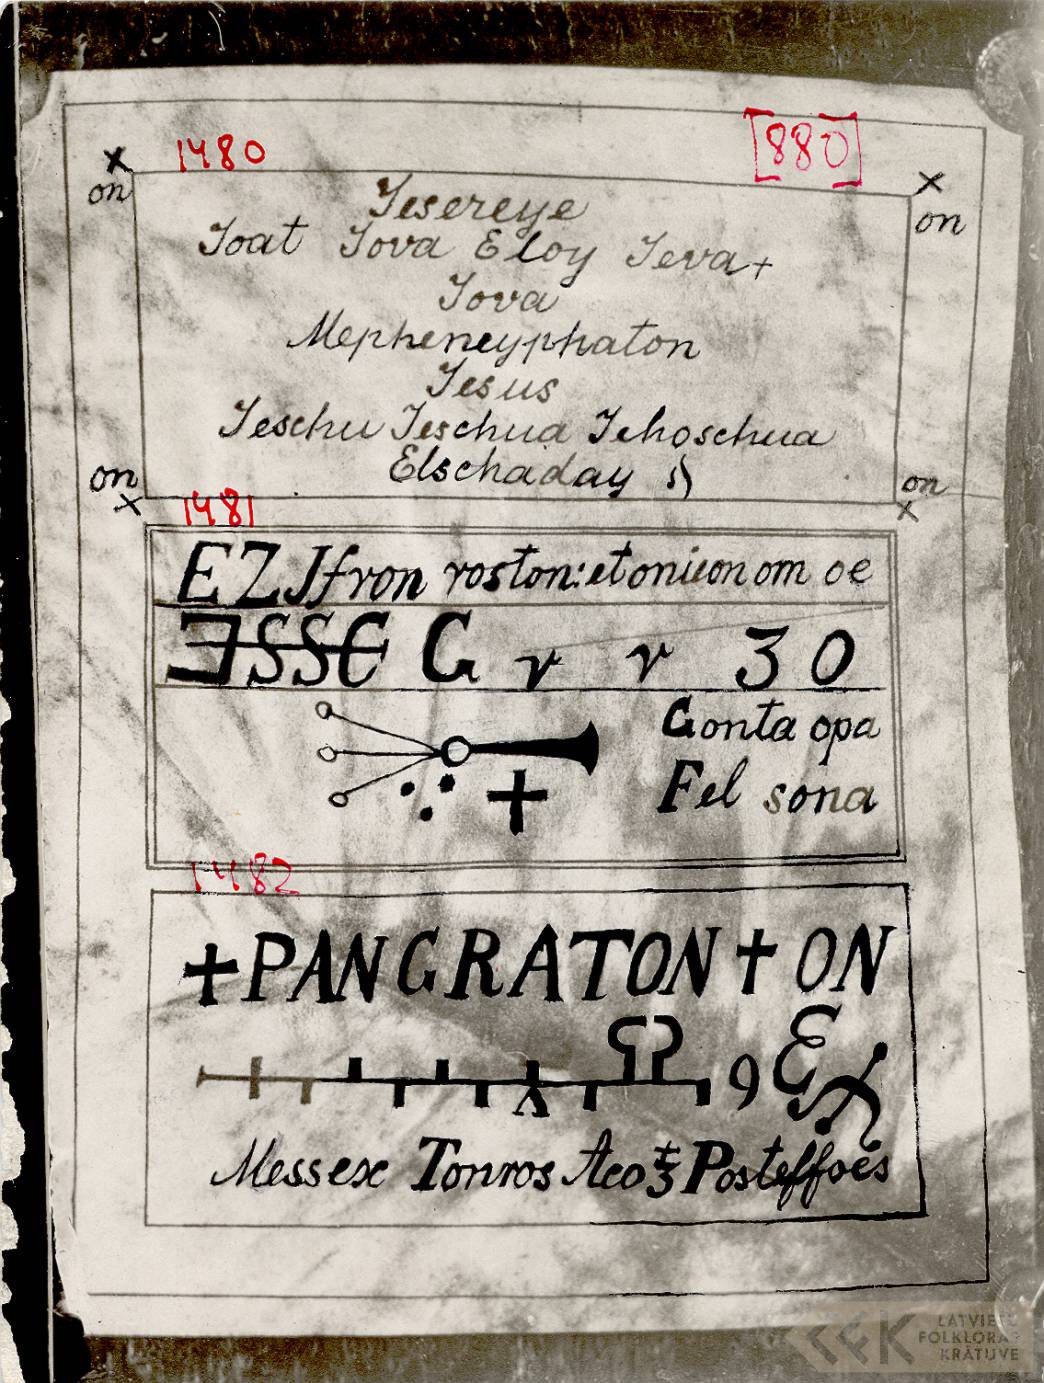 1480 [880]
× ×
on on
Jesereye
Joat Jova Eloy Jeva+
Jova
Mepheneyphaton
Jesus
Jeschu Jeschua Jehoschua
Elschaday
on on
× ×
1481
EZJfron roston:etonieon om oe
ƎSSE G r r 3 0
Gonta opa
Fel sona
+
1482
+PANGRATON+ON
9 E
Messex Tonros Aco Posteffoes
LATVIEŠU
FOLKLORAS
KRĀTUVE